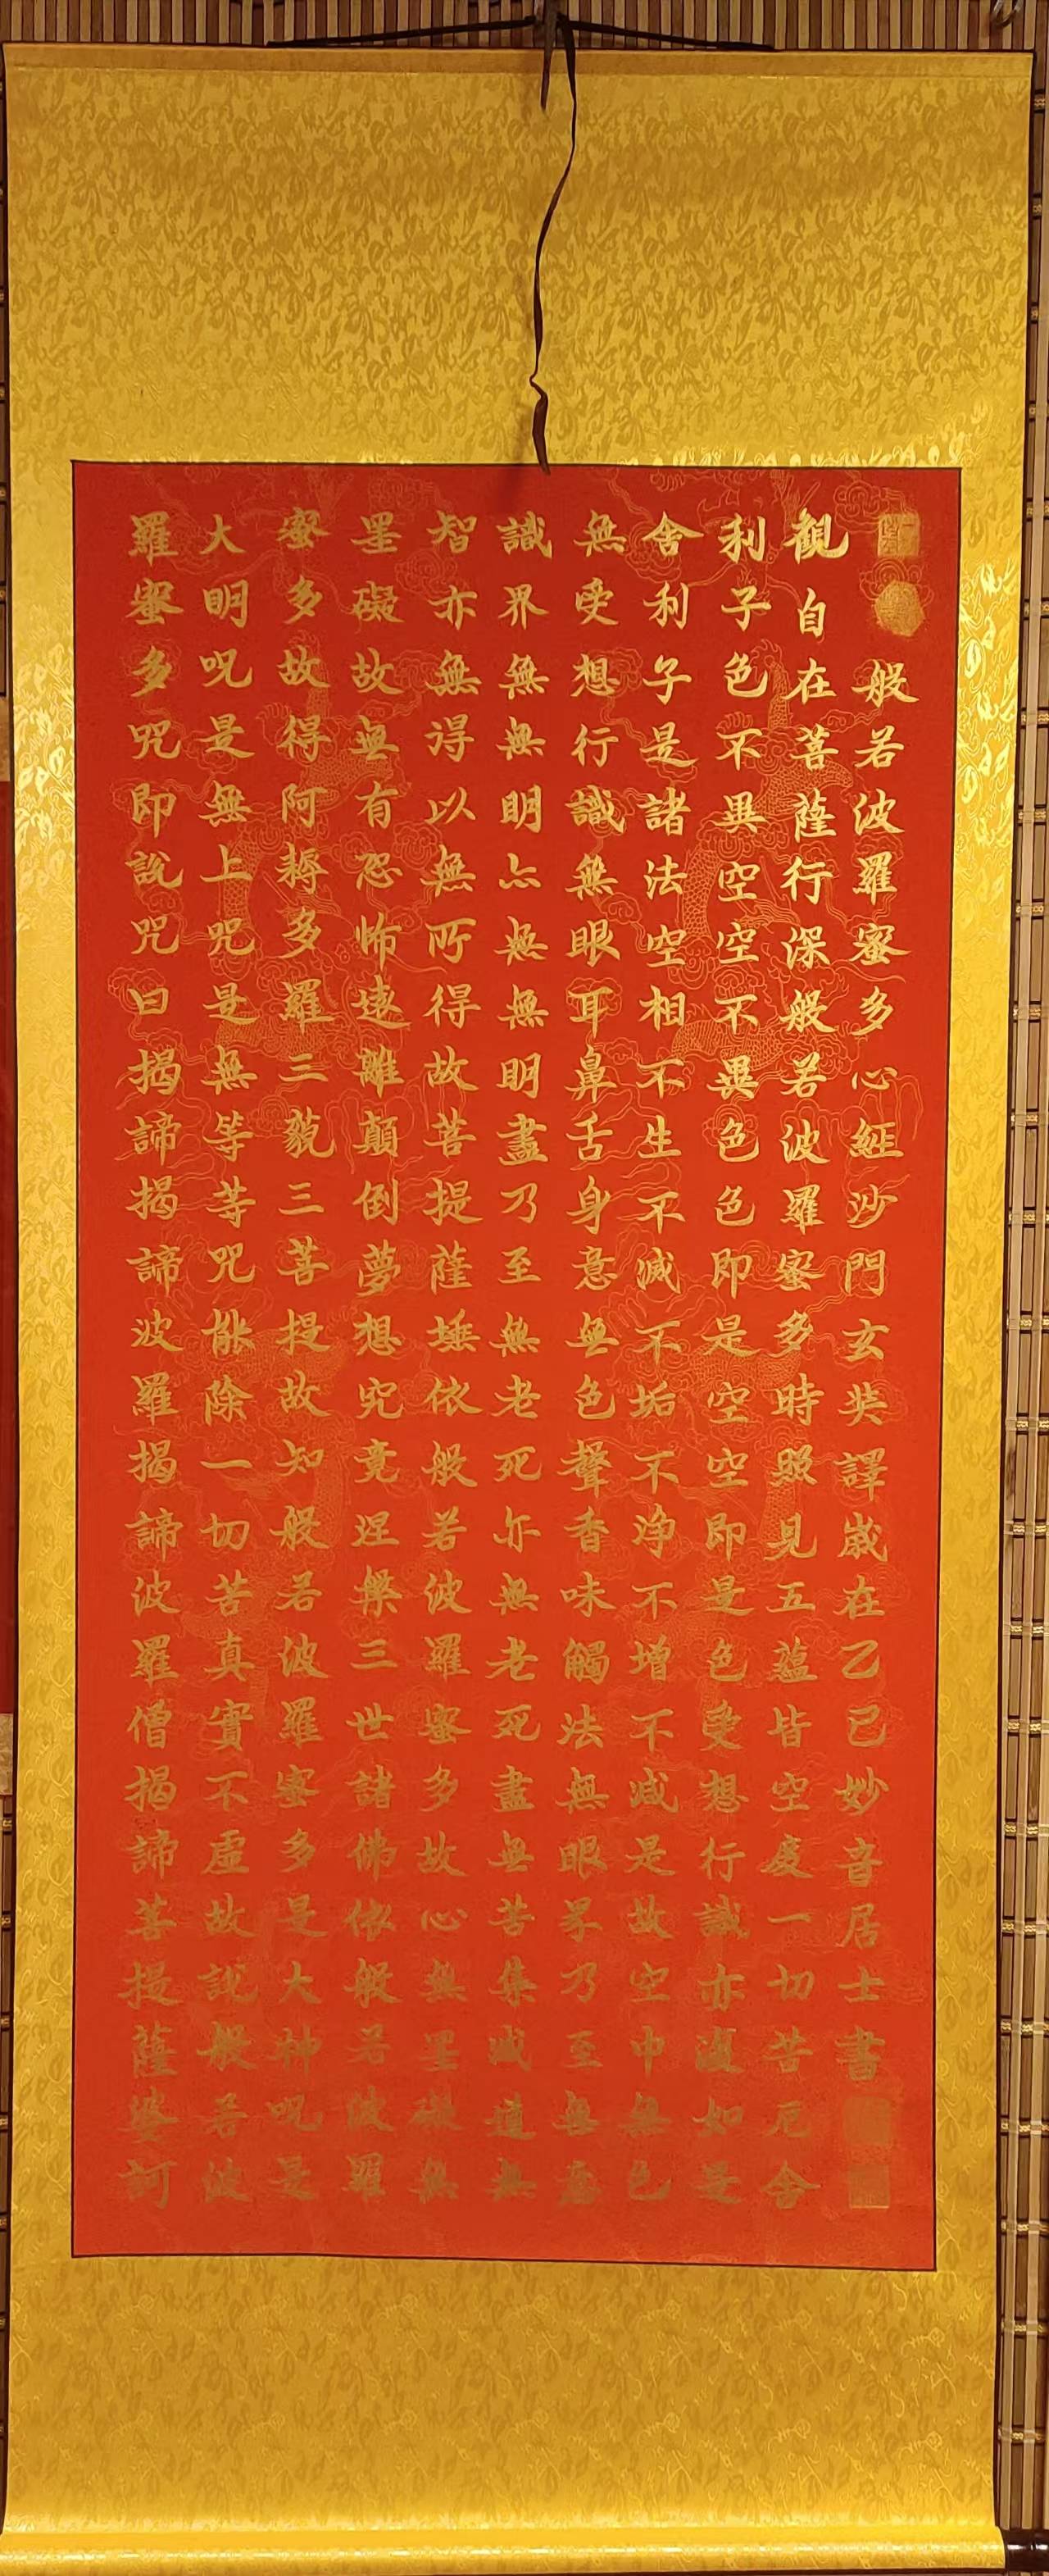 般若波羅蜜多心經沙門玄奘譯歲在乙巳妙音居士書
觀自在菩薩行深般若波羅蜜多時照見五蘊皆空度一切苦厄舍
利子色不異空空不異色色即是空空即是色受想行識亦復如是
舍利子是諸法空相不生不滅不垢不淨不增不減是故空中無色
無受想行識無眼耳鼻舌身意無色聲香味觸法無眼界乃至無意
識界無無明亦無無明盡乃至無老死亦無老死盡無苦集滅道無
智亦無得以無所得故菩提薩埵依般若波羅蜜多故心無罣礙無
罣礙故無有恐怖遠離顛倒夢想究竟涅槃三世諸佛依般若波羅
蜜多故得阿耨多羅三藐三菩提故知般若波羅蜜多是大神呪是
大明呪是無上呪是無等等呪能除一切苦真實不虛故說般若波
羅蜜多呪即說呪曰揭諦揭諦波羅揭諦波羅僧揭諦菩提薩婆訶